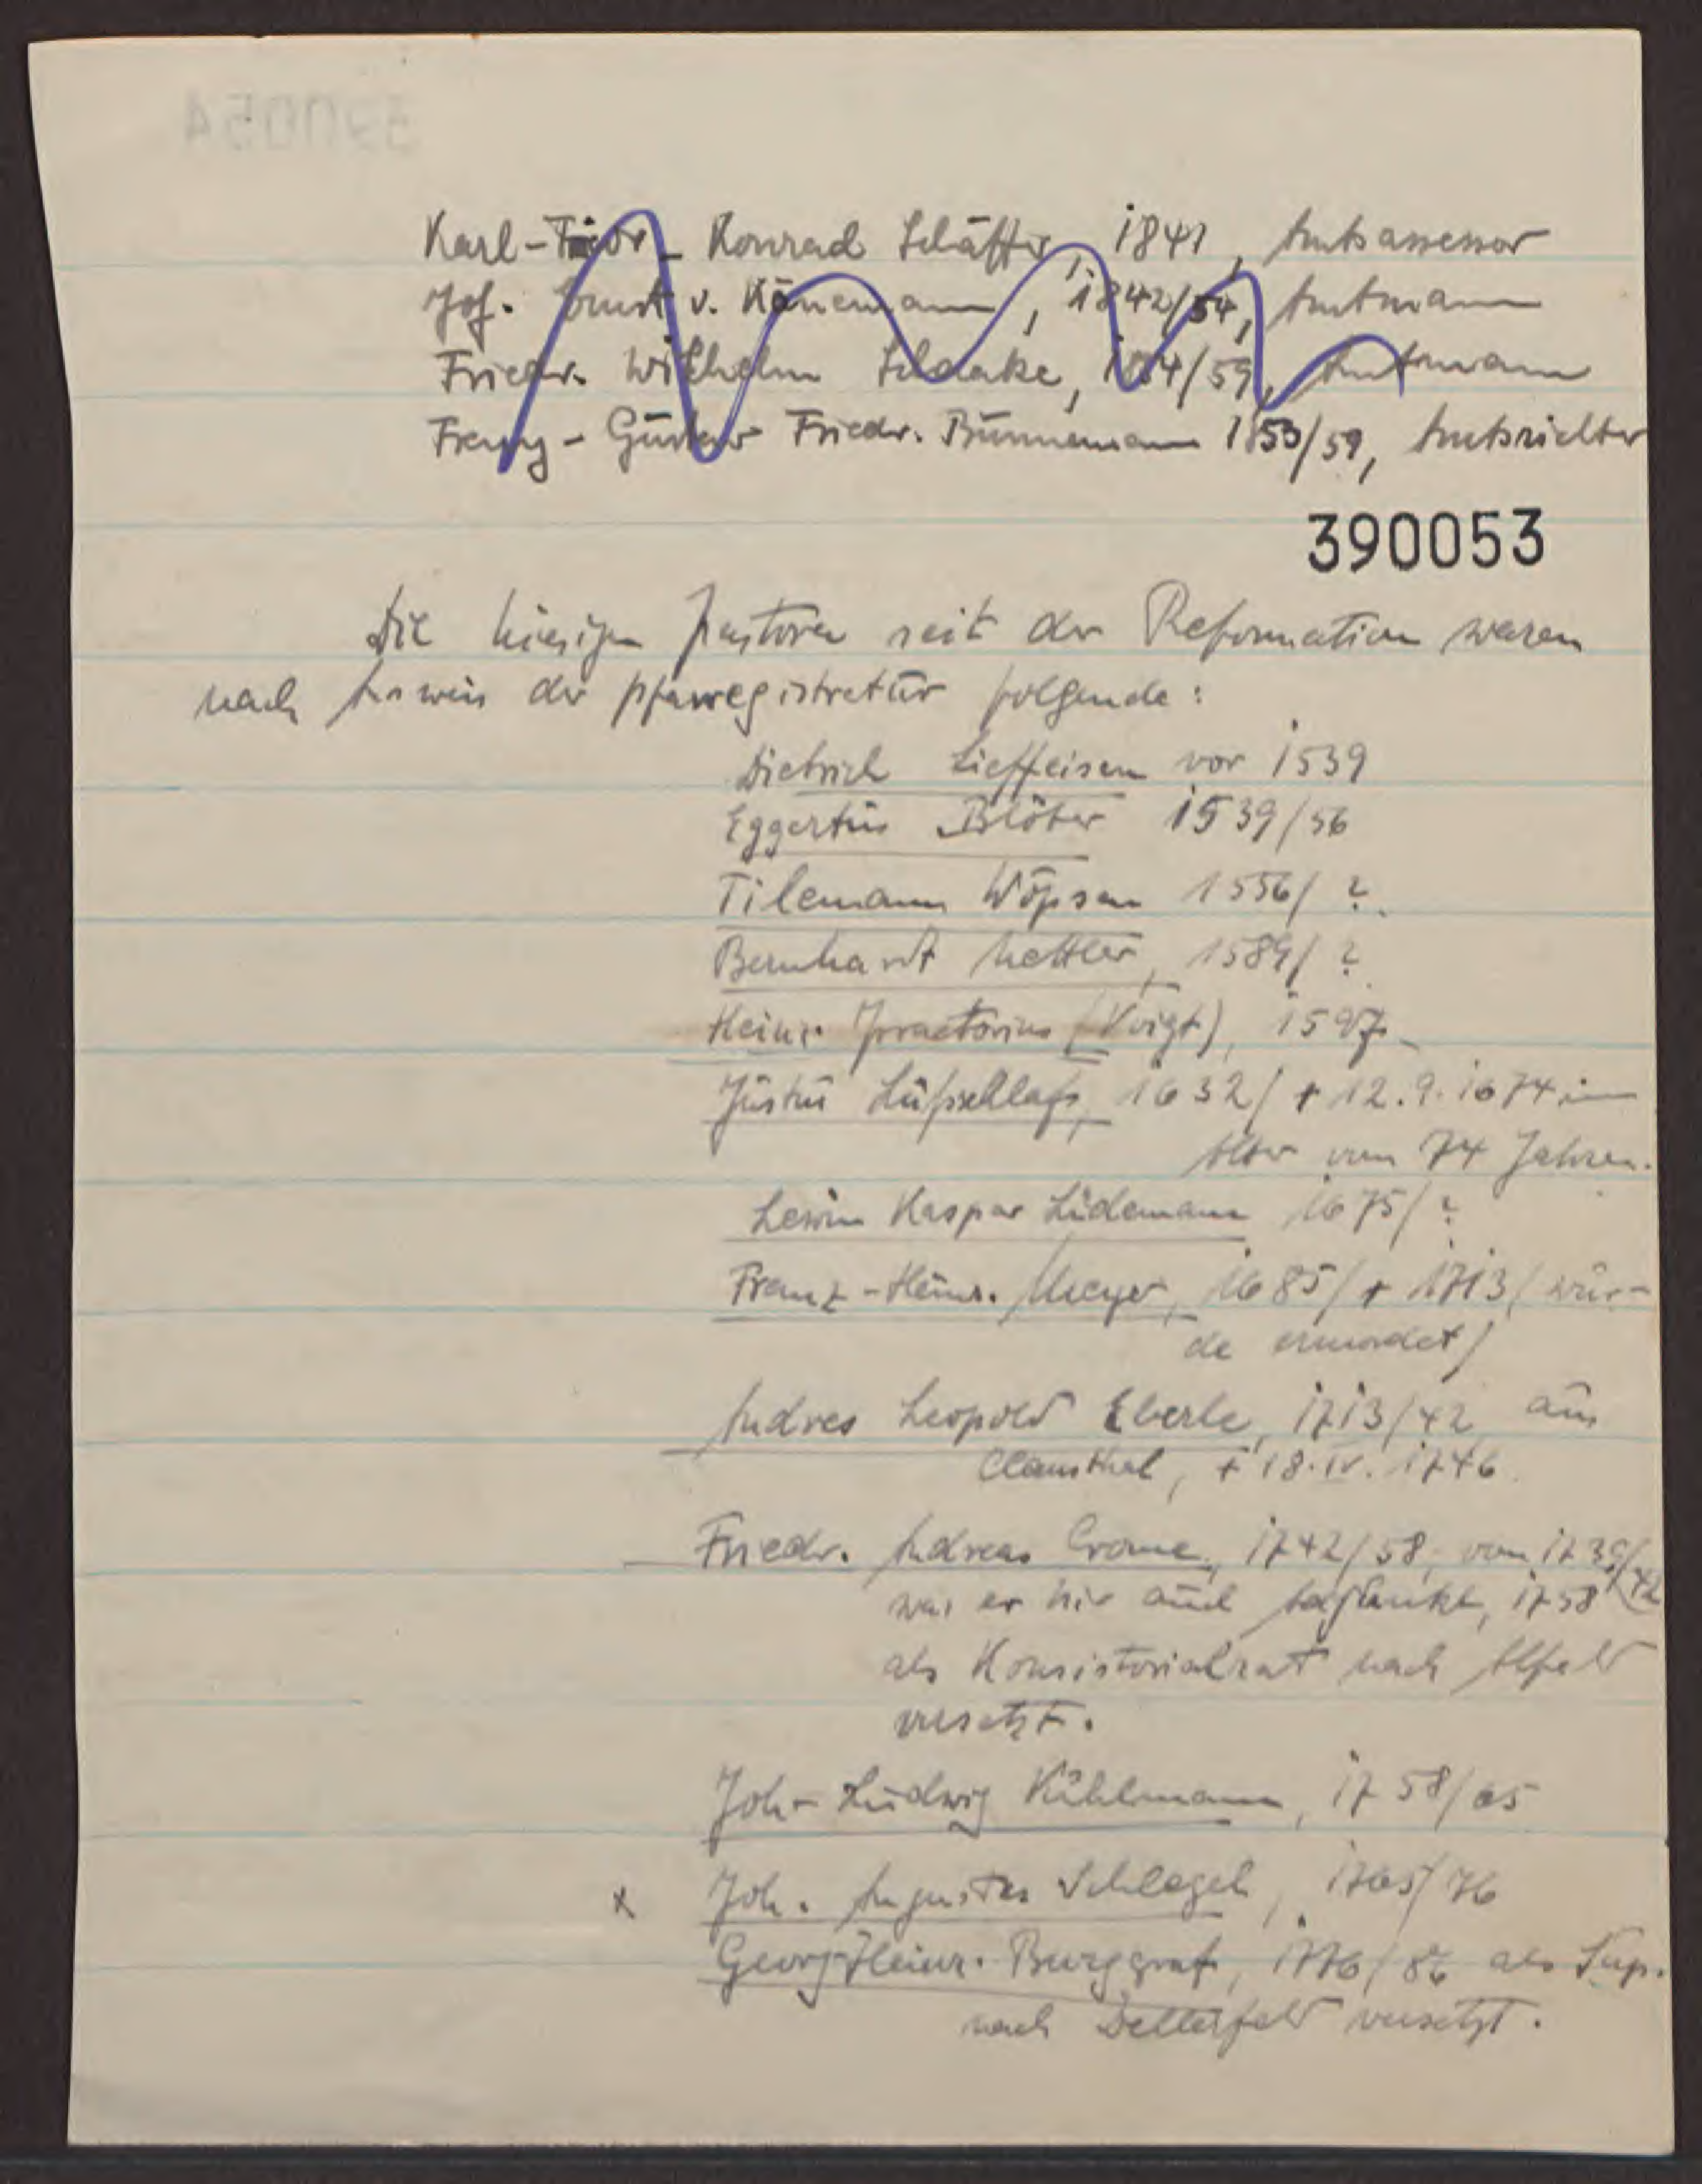 Karl-Friedr. Konrad Schäffer, 1841, Amtsassessor
Joh. Ernst v. Könemann, 1842/54, Amtmann
Friedr. Wilhelm Schaake, 1854/59, Amtmann
Franz-Gustav Friedr. Bünnemann 1853/59, Amtsrichter
390053
Die hiesigen Pastoren seit der Reformation waren
nach Ausweis der Pfarregistratur folgende:
Dietrich Lieffeisen vor 1539
Eggertus Blöter 1539/56
Tilemann Wöpsen 1556/ ?
Bernhardt Mettler, 1589/ ?
Heinr. Praetorius (Voigt), 1597
Justus Lüfschlafs, 1632/ + 12.9.1674 im
Alter von 74 Jahren.
Lewin Kaspar Lüdemann 1675/ ?
Franz-Heinr. Meyer, 1685/ + 1713 (wur-
de ermordet)
Andres Leopold Eberle, 1713/42 aus
Clausthal, + 18.IV.1746
Friedr. Andreas Crome, 1742/58, von 1739/42
war er hier auch Adjunkt, 1758
als Konsistorialrat nach Alfeld
versetzt.
Joh- Ludwig Kühlmann, 1758/65
x Joh. Augustus Schlegel, 1765/76
Georg-Heinr. Burggraf, 1776/86 als Sup.
nach versetzt.